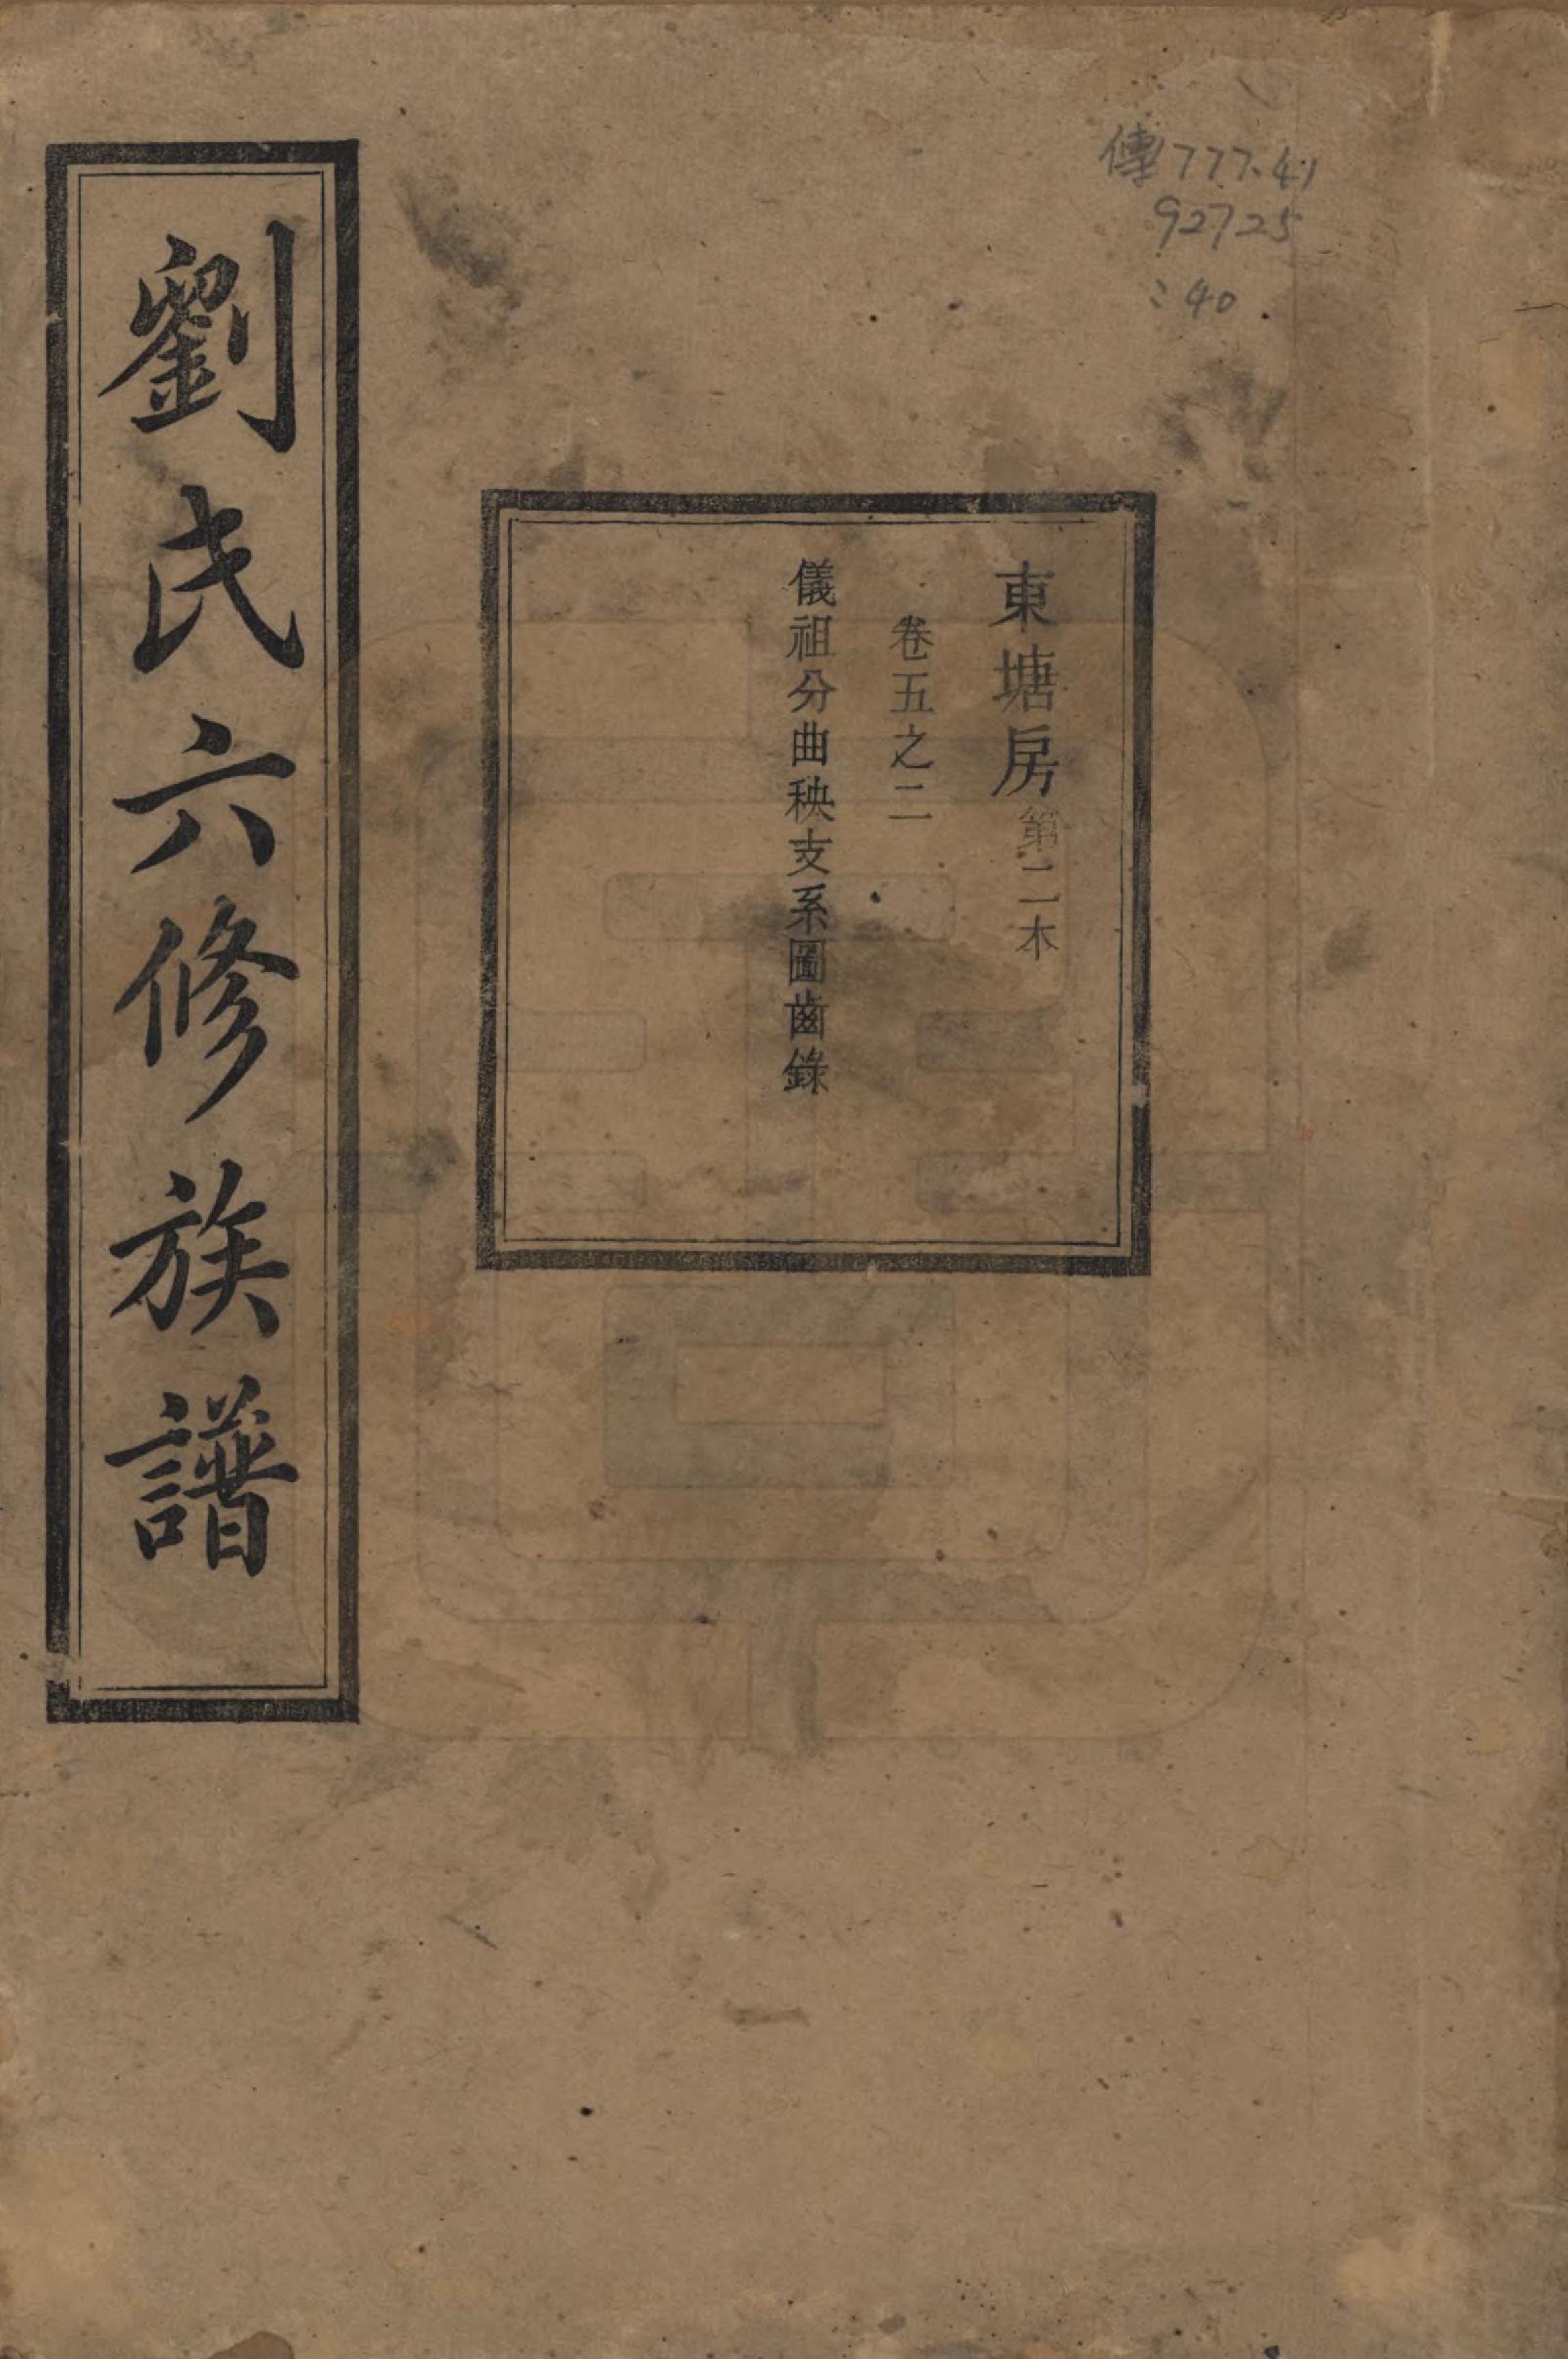 傳777.41
92725
:40
東塘房第二本
卷五之二
儀祖分曲秧支系圖齒錄
劉氏六修族譜